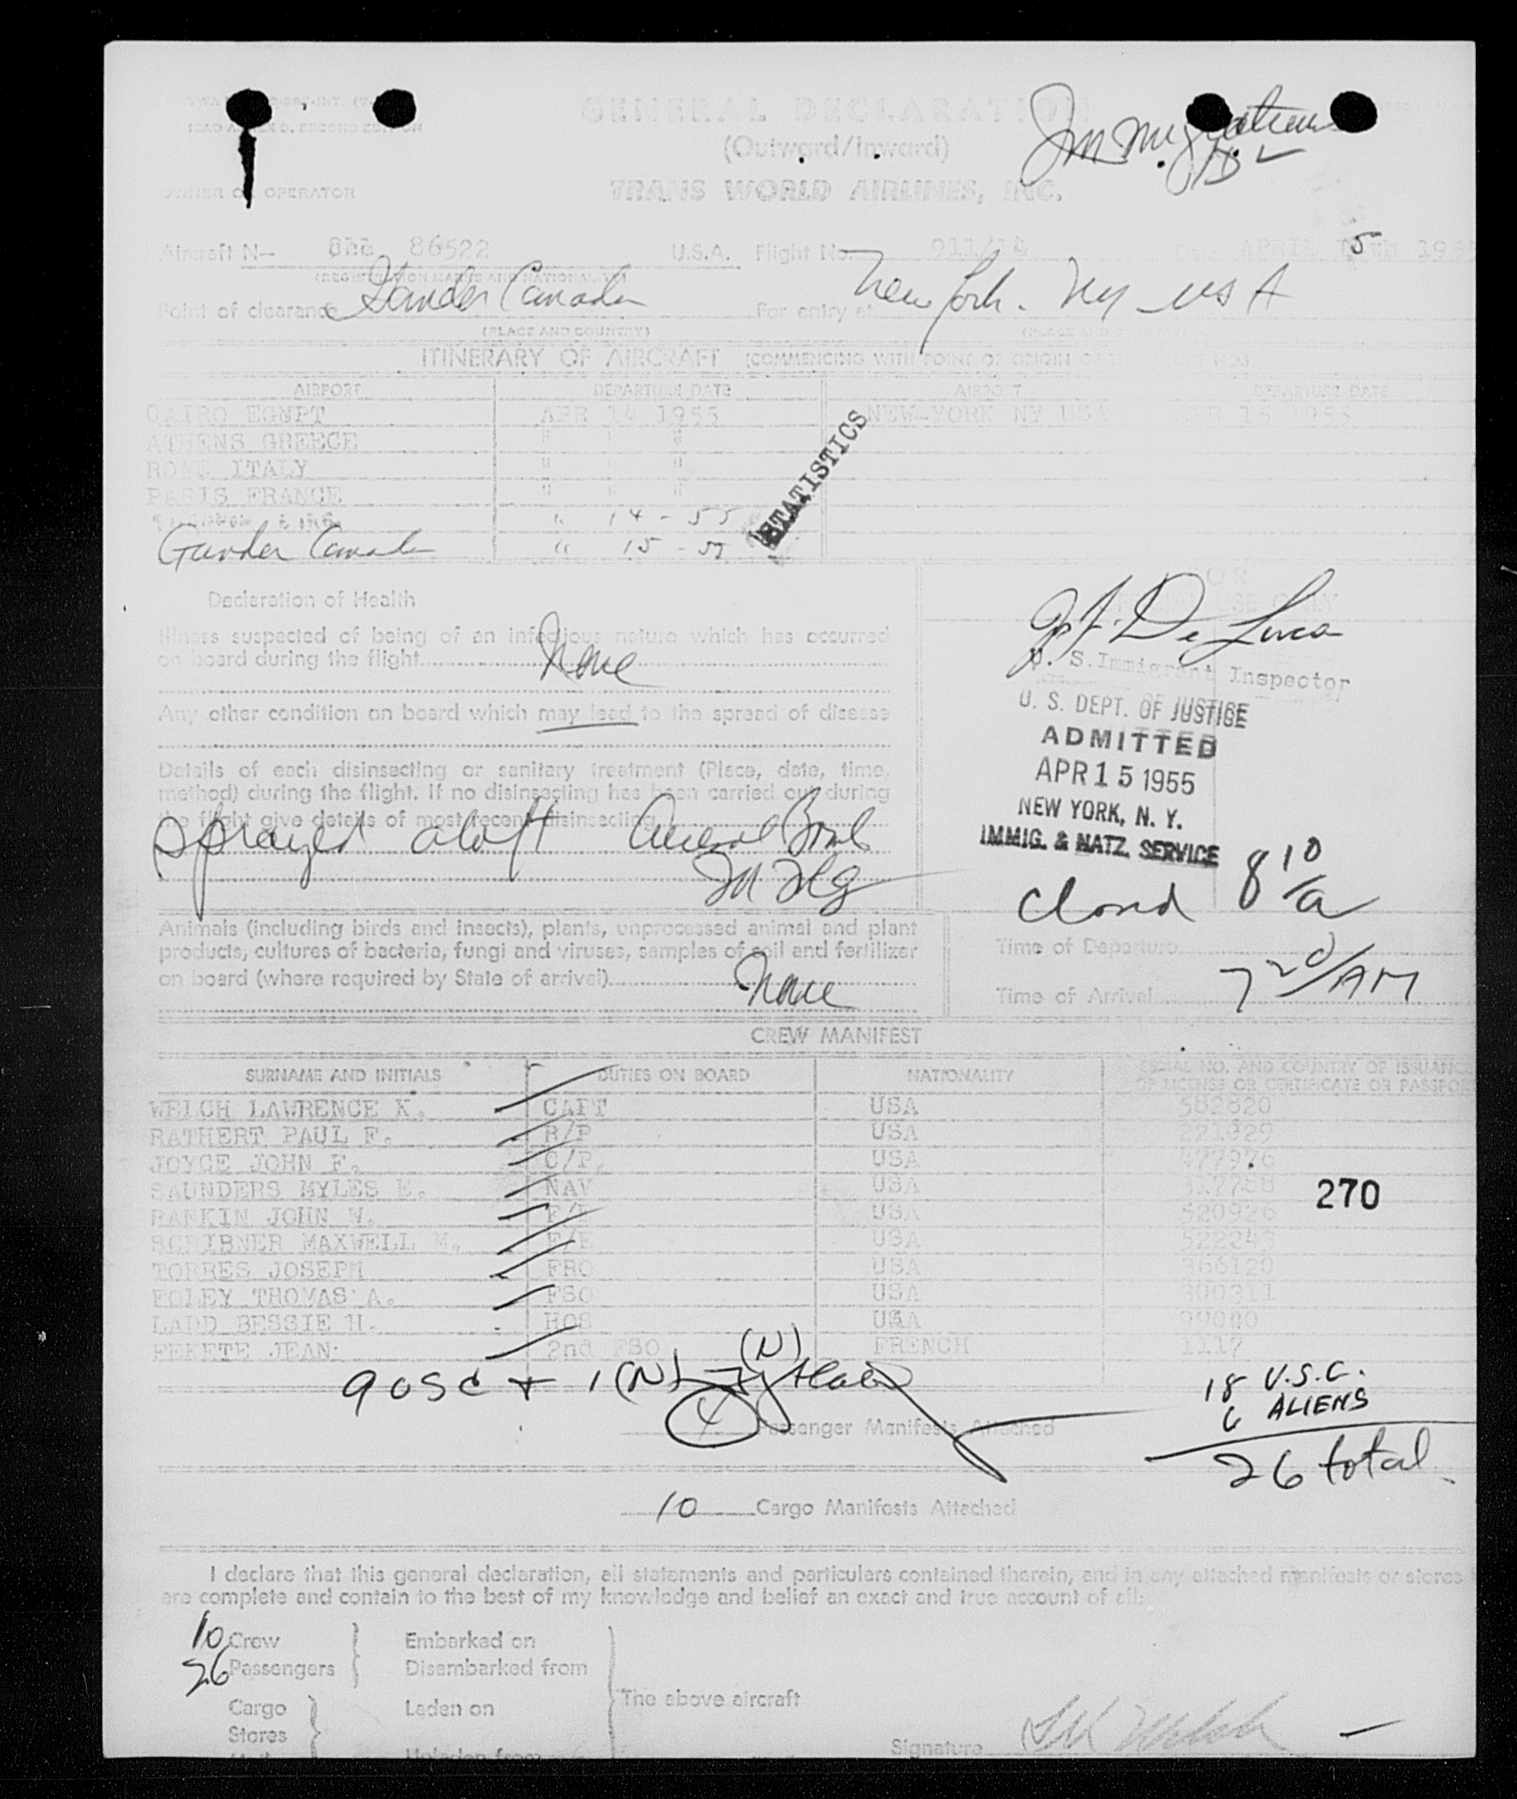 GENERAL DECLARATION
Immigration
ICAO ANNEX 9, SECOND EDITION
(Outward/Inward)
OWNER OR OPERATOR
TRANS WORLD AIRLINES, INC.
Aircraft N— 86522 U.S.A. Flight No. 911/14 Date APRIL 15th 1955
(REGISTRATION MARKS AND NATIONALITY)
Point of clearance Gander Canada For entry at New York. NY USA
(PLACE AND COUNTRY)
ITINERARY OF AIRCRAFT (COMMENCING WITH POINT OF ORIGIN
AIRPORT DEPARTURE DATE AIRPORT DEPARTURE DATE
CAIRO EGYPT APR 14 1955 NEW-YORK NY USA
ATHENS GREECE " " "
ROME ITALY " " "
PARIS FRANCE " " "
" 14 - 55
Gander Canada " 15 - 55
STATISTICS
Declaration of Health
Illness suspected of being of an infectious nature which has occurred
on board during the flight
None
Any other condition on board which may lead to the spread of disease
Details of each disinsecting or sanitary treatment (Place, date, time,
method) during the flight. If no disinsecting has been carried out during
the flight give details of most recent disinsecting
sprayed aloft Aerosol Bomb
De Luca
U. S. Immigrant Inspector
U. S. DEPT. OF JUSTICE
ADMITTED
APR 15 1955
NEW YORK, N. Y.
IMMIG. & NATZ. SERVICE
Closed 8 10/a
Animals (including birds and insects), plants, unprocessed animal and plant
products, cultures of bacteria, fungi and viruses, samples of soil and fertilizer
on board (where required by State of arrival) None
Time of Departure
Time of Arrival 7 20/AM
CREW MANIFEST
SURNAME AND INITIALS DUTIES ON BOARD NATIONALITY SERIAL NO. AND COUNTRY OF ISSUANCE
OF LICENSE OR CERTIFICATE OR PASSPOR
WELCH LAWRENCE K. CAPT USA 582820
RATHERT PAUL F. R/P USA
JOYCE JOHN F. C/P. USA 477976
SAUNDERS MYLES E. NAV USA
RANKIN JOHN W. USA 520926
SCRIBNER MAXWELL M. F/E USA
TORRES JOSEPH FRO USA 366120
FOLEY THOMAS A. FSO USA 300311
LADD BESSIE H. HOS USA 99000
FEKETE JEAN 2nd FSO FRENCH 1117
270
9 USC + 1 (N)
(N)
18 U.S.C.
6 ALIENS
26 total
4 Passenger Manifests Attached
10 Cargo Manifests Attached
I declare that this general declaration, all statements and particulars contained therein, and in any attached manifests or stores
are complete and contain to the best of my knowledge and belief an exact and true account of all:
10 Crew Embarked on
26 Passengers Disembarked from
The above aircraft
Cargo Laden on
Stores
Unladen from
Signature LK Welch